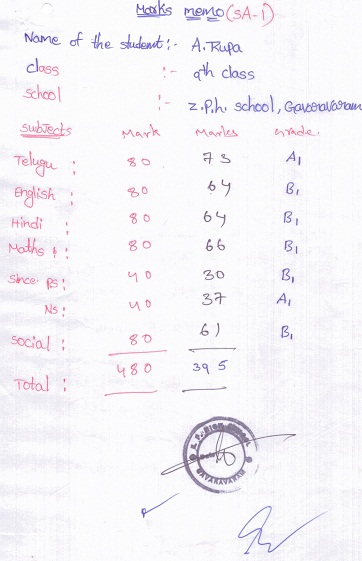 Marks memo (SA-1)
Name of the student :- A. Rupa
class :- 9th class
school :- Z.P.h. school, Gavaravaram
Subjects Mark Marks Grade
Telugu : 80 73 A1
English : 80 64 B1
Hindi : 80 64 B1
Maths : 80 66 B1
Since: PS: 40 30 B1
NS: 40 37 A1
Social : 80 61 B1
Total : 480 395
Z. P. HIGH SCHOOL
GAVARAVARAM